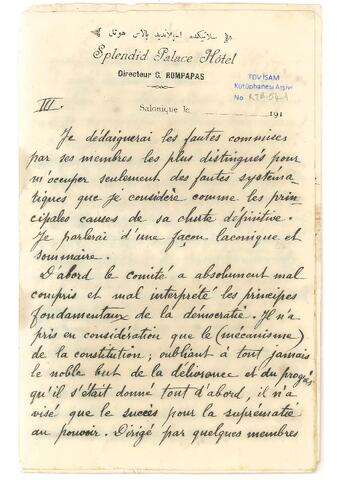 سلانيكده اسپلانديد پالاس هوتل
Splendid Palace Hôtel
Directeur C. ROMPAPAS
TDV İSAM
Kütüphanesi Arşivi
No
Salonique le 191
III.
Je dédaignerai les fautes commises
par ses membres les plus distingués pour
m'occuper seulement des fautes systéma-
tiques que je considère comme les prin-
cipales causes de sa chute définitive.
Je parlerai d'une façon laconique et
sommaire.
D'abord le comité a absolument mal
compris et mal interprété les principes
fondamentaux de la démocratie. Il n'a
pris en considération que le (mécanisme)
de la constitution; oubliant à tout jamais
le noble but de la délivrance et du progrès
qu'il s'était donné tout d'abord, il n'a
visé que le succès pour la suprématie
au pouvoir. Dirigé par quelques membres